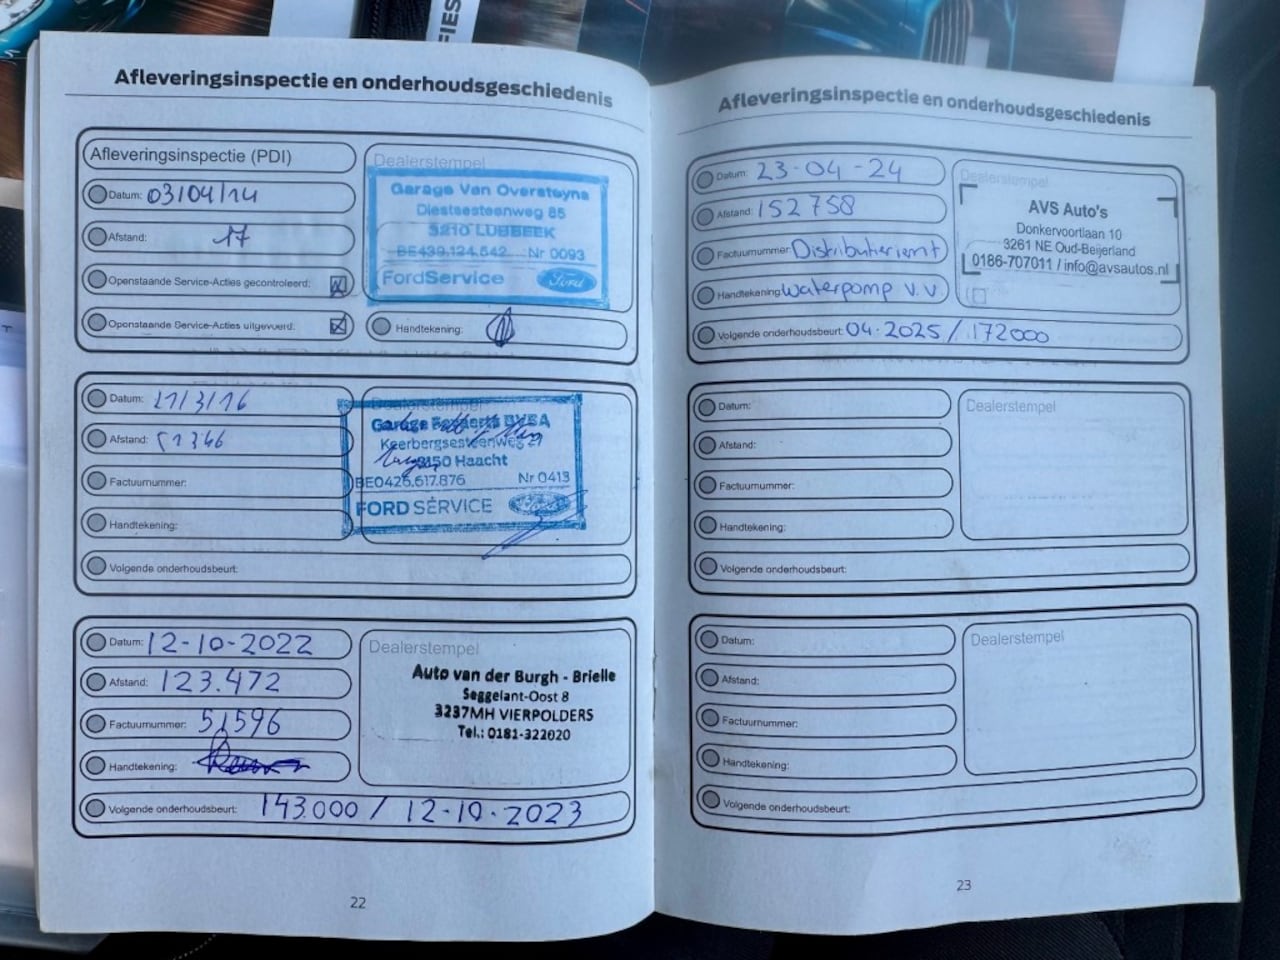 FIES
Afleveringsinspectie en onderhoudsgeschiedenis
Afleveringsinspectie (PDI)
Datum: 03/04/14
Afstand: 17
Openstaande Service-Acties gecontroleerd:
Openstaande Service-Acties uitgevoerd:
Dealerstempel
Garage Van Oversteyns
Diestsesteenweg 85
3210 LUBBEEK
BE439.124.542 Nr 0093
FordService
Ford
Handtekening:
Datum: 21/3/16
Afstand: 51346
Factuurnummer:
Handtekening:
Volgende onderhoudsbeurt:
Dealerstempel
Garage BVBA
Keerbergsesteenweg 27
3150 Haacht
BE0426.617.876 Nr 0413
FORD SERVICE
Datum: 12-10-2022
Afstand: 123.472
Factuurnummer: 51596
Handtekening:
Volgende onderhoudsbeurt: 143.000 / 12-10-2023
Dealerstempel
Auto van der Burgh - Brielle
Seggelant-Oost 8
3237MH VIERPOLDERS
Tel.: 0181-322020
22
Afleveringsinspectie en onderhoudsgeschiedenis
Datum: 23-04-24
Afstand: 152758
Factuurnummer: Distributieriemt
Handtekening: waterpomp v.v.
Volgende onderhoudsbeurt: 04.2025 / 172000
Dealerstempel
AVS Auto's
Donkervoortlaan 10
3261 NE Oud-Beijerland
0186-707011 / info@avsautos.nl
Datum:
Afstand:
Factuurnummer:
Handtekening:
Volgende onderhoudsbeurt:
Dealerstempel
Datum:
Afstand:
Factuurnummer:
Handtekening:
Volgende onderhoudsbeurt:
Dealerstempel
23